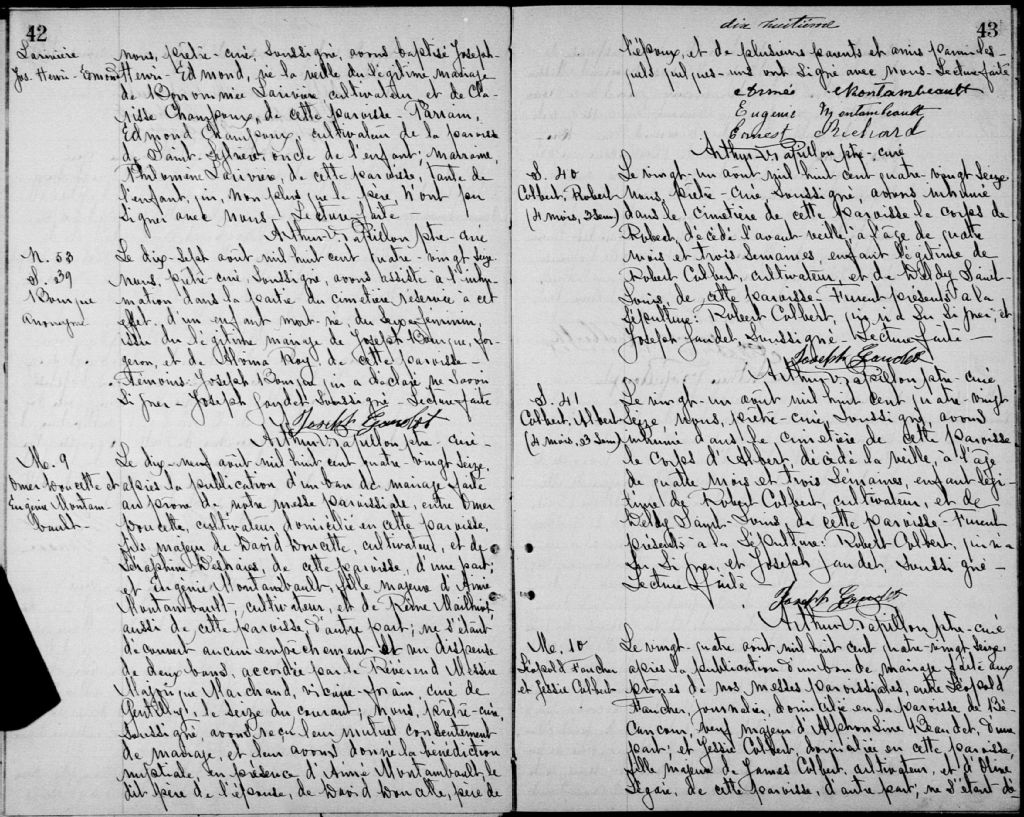 42
Larivière
Jos. Henri-Edmond
nous, prêtre-curé, soussigné, avons baptisé Joseph-
Henri-Edmond, né la veille du légitime mariage
de cultivateur, et de Cla-
risse Champoux, de cette paroisse. Parrain,
Edmond Champoux, cultivateur de la paroisse
de Saint- oncle de l'enfant; marraine,
Philomène Larivière, de cette paroisse, tante de
l'enfant, qui, non plus que le père, n'ont pu
signer avec nous. Lecture faite.
Arthur Papillon ptre-curé
N. 53
S. 39
Bourque
Anonyme
Le dix-sept août mil huit cent quatre-vingt seize,
nous, prêtre-curé, soussigné, avons assisté à l'inhu-
mation dans la partie du cimetière réservée à cet
effet, d'un enfant mort-né, du sexe féminin,
issu du légitime mariage de Joseph Bourque, for-
geron, et de Roy de cette paroisse.
Témoins: Joseph Bourque qui a déclaré ne savoir
signer. Joseph Gaudet soussigné. Lecture faite
Joseph Gaudet
Arthur Papillon ptre-curé
M. 9
Omer Doucette et
Eugénie Montam-
bault
Le dix-neuf août mil huit cent quatre-vingt seize,
après la publication d'un ban de mariage faite
au prône de notre messe paroissiale, entre Omer
Doucette, cultivateur domicilié en cette paroisse,
fils majeur de David Doucette, cultivateur, et de
Séraphine Deshaies, de cette paroisse, d'une part;
et Eugénie Montambault, fille majeure d'Aimé
Montambault, cultivateur, et de Reine Mailhiot
aussi de cette paroisse, d'autre part; ne s'étant
découvert aucun empêchement et vu dispense
de deux bans, accordée par le Révérend Messire
Majorique Marchand, vicaire-forain, curé de
Gentilly, le seize du courant; nous, prêtre-curé,
soussigné, avons reçu leur mutuel consentement
de mariage, et leur avons donné la bénédiction
nuptiale, en présence d'Aimé Montambault, le
dit père de l'épouse, de David Doucette, père de
dix huitième
43
l'époux, et de plusieurs parents et amis parmi les-
quels quelques-uns ont signé avec nous. Lecture faite
Aimée Montambeault
Eugenie Montambeault
Ernest Richard
Arthur Papillon ptre-curé
S. 40
Colbert, Robert
(4 mois, 3 sem)
Le vingt-un août mil huit cent quatre-vingt seize
nous, prêtre-curé soussigné, avons inhumé
dans le cimetière de cette paroisse le corps de
Robert, décédé l'avant-veille, à l'âge de quatre
mois et trois semaines, enfant légitime de
Robert Colbert, cultivateur, et de Delsy Saint-
Louis, de cette paroisse. Furent présents à la
sépulture: Robert Colbert, qui n'a su signer, et
Joseph Gaudet, soussigné. Lecture faite
Joseph Gaudet
Arthur Papillon ptre-curé
S. 41
Colbert, Albert
(4 mois, 3 sem)
Le vingt-un août mil huit cent quatre-vingt
seize, nous, prêtre-curé, soussigné, avons
inhumé dans le cimetière de cette paroisse
le corps d'Albert, décédé la veille, à l'âge
de quatre mois et trois semaines, enfant légi-
time de Robert Colbert, cultivateur, et de
Delsy Saint-Louis, de cette paroisse. Furent
présents à la sépulture: Robert Colbert, qui n'a
su signer, et Joseph Gaudet, soussigné.
Lecture faite
Joseph Gaudet
Arthur Papillon ptre-curé
M. 10
Léopold Faucher
et Jessie Colbert
Le vingt-quatre août mil huit cent quatre-vingt seize,
après la publication d'un ban de mariage faite aux
prônes de nos messes paroissiales, entre Léopold
Faucher, journalier, domicilié en la paroisse de Bé-
cancour, veuf majeur d'Alphonsine Beaudet, d'une
part; et Jessie Colbert, domiciliée en cette paroisse
fille majeure de James Colbert, cultivateur, et d'Olive
Légaré, de cette paroisse, d'autre part; ne s'étant dé-